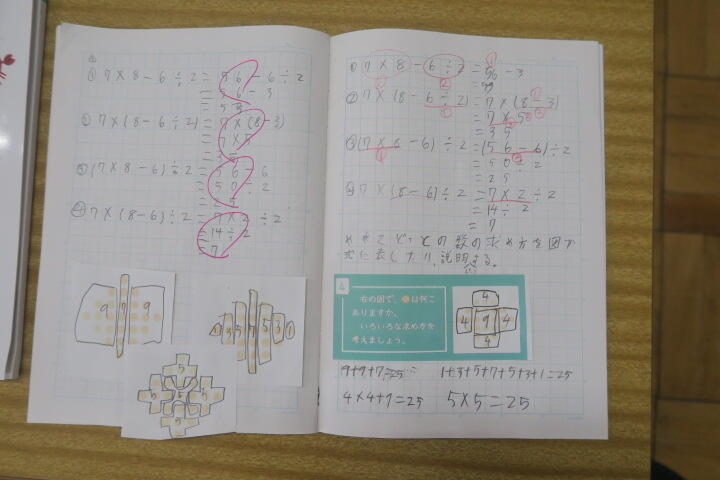 ① 7×8-6÷2=56-6÷2
=56-3
=53
② 7×(8-6÷2)=7×(8-3)
=7×5
=35
③ (7×8-6)÷2=56-6
=50÷2
=25
④ 7×(8-6)÷2=7×2÷2
=14÷2
=7
9 7 9
1 3 5 7 5 3 1
5
5 5 5
5
① 7×8-6÷2=56-3
② 7×(8-6÷2)=7×(8-3)
=7×5
=35
③ (7×8-6)÷2=(56-6)÷2
=50÷2
=25
④ 7×(8-6)÷2=7×2÷2
=14÷2
=7
の数の求め方を図や
式に表したり、説明する。
4
右の図で、●は何こ
ありますか。
いろいろな求め方を
考えましょう。
4
4 9 4
4
9+9+7=25
1+3+5+7+5+3+1=25
4×4+9=25
5×5=25